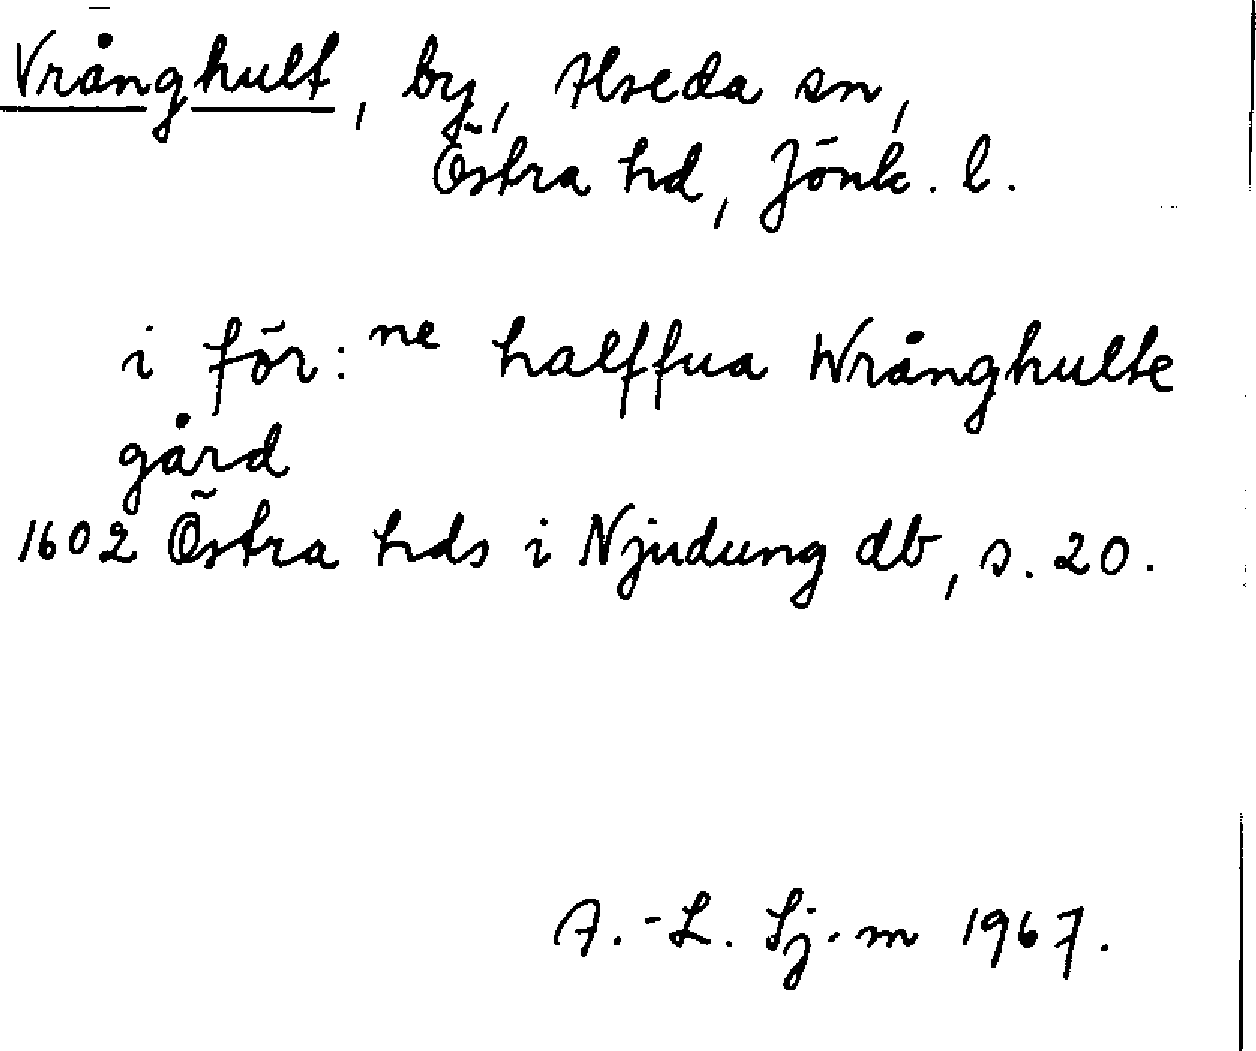 Vrånghult, by, Alseda sn,
Östra hd, Jönk. l.
i för:ne halffua Wrånghulte
gård
1602 Östra hds i Njudung db, s. 20.
A.-L. Sj.m 1967.